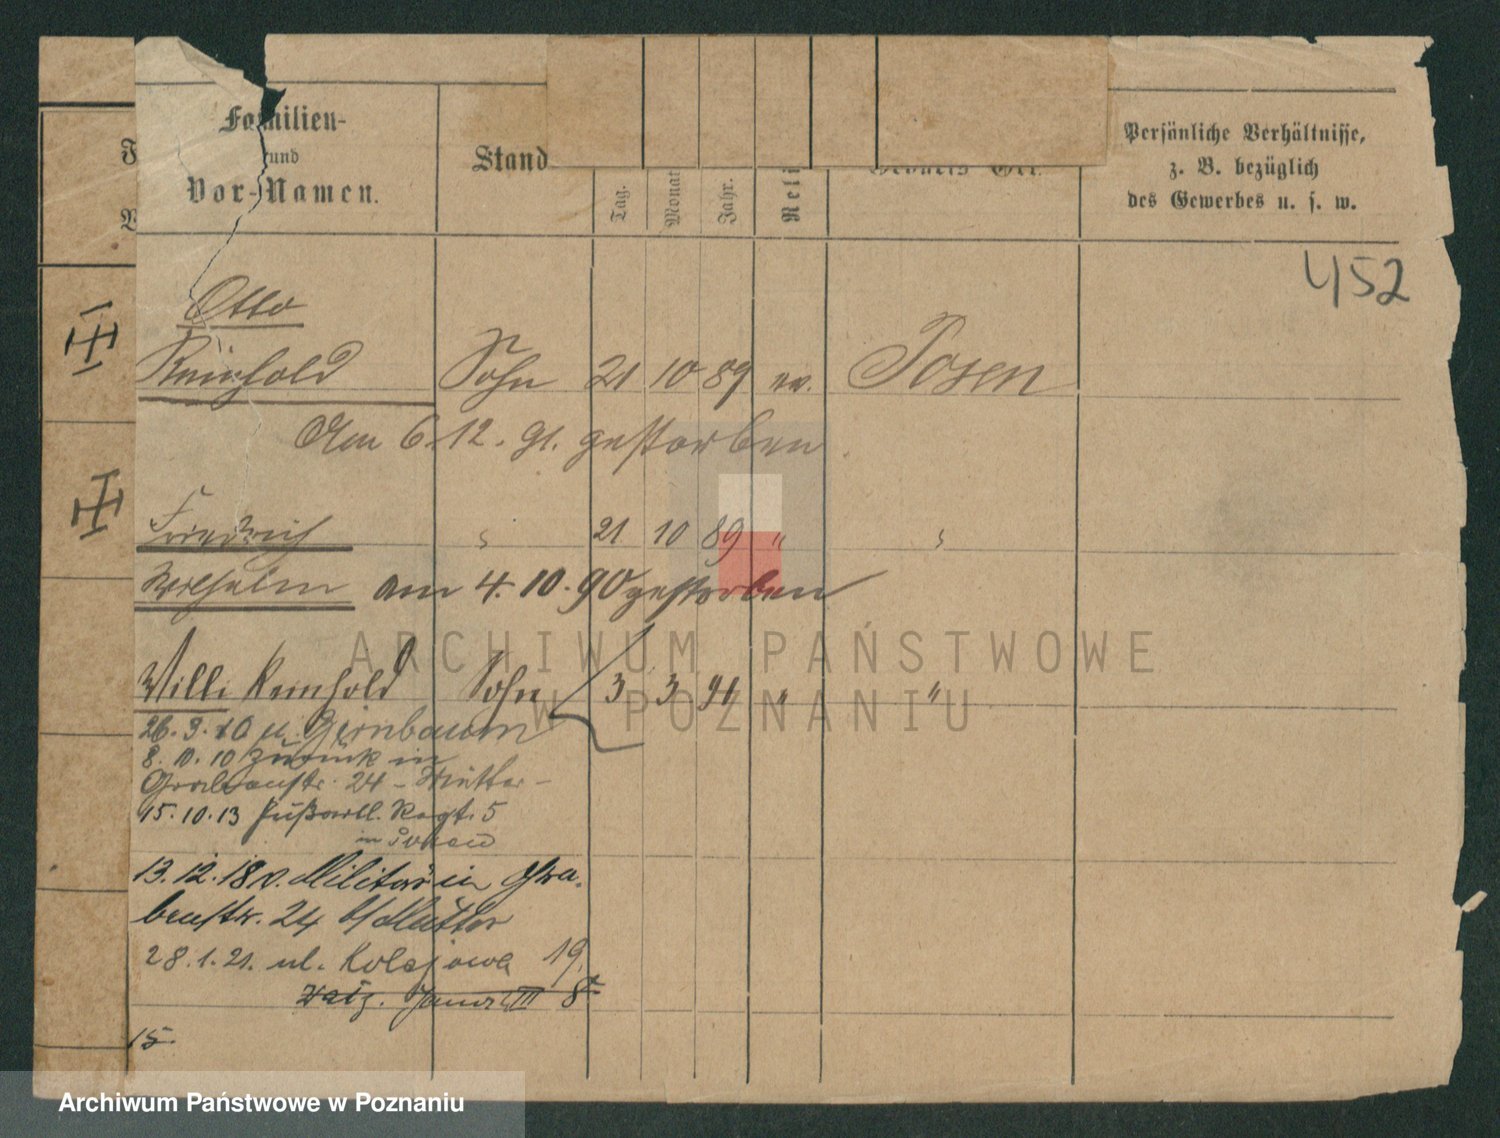 Familien-
und
Vor-Namen.
Stand
Tag.
Monat
Jahr.
Reli
Persönliche Verhältnisse,
z. B. bezüglich
des Gewerbes u. s. w.
452
Otto
Reinhold Sohn 21 10 89 ev. Posen
Am 6.12.91. gestorben.
Friedrich " 21 10 89 " "
Wilhelm am 4.10.90 gestorben
Willi Reinhold Sohn 3 3 91 " "
26.9.10 n. Birnbaum
8.10.10 zurück in
Grabenstr. 24 - Mutter -
15.10.13 Fußartl. Regt. 5
in Posen
13.12.18 v. Militär in Gra-
benstr. 24 b/Mutter
28.1.21. ul. Kolejowa 19
8
15.
ARCHIWUM PAŃSTWOWE
W POZNANIU
Archiwum Państwowe w Poznaniu